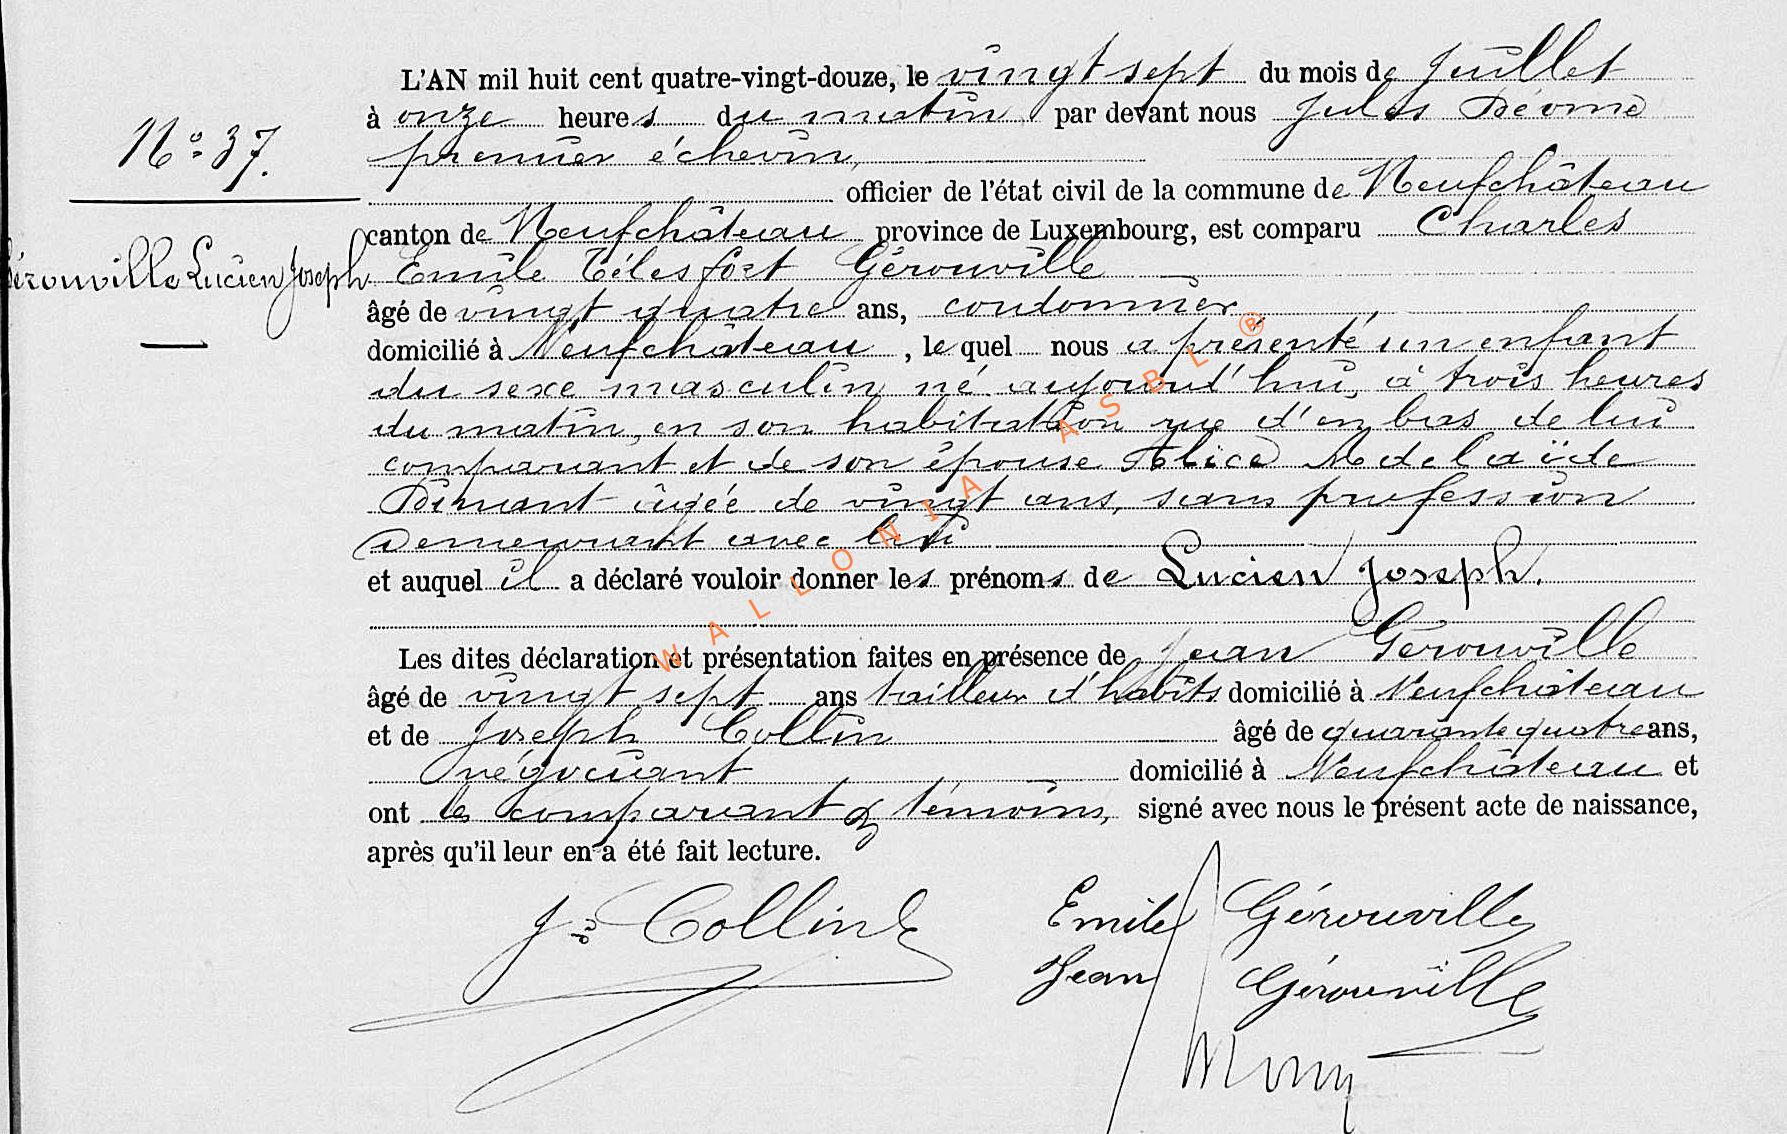 L'AN mil huit cent quatre-vingt-douze, le vingt sept du mois de Juillet
à onze heures du matin par devant nous Jules Déome
N° 37.
premier échevin,
officier de l'état civil de la commune de Neufchâteau
canton de Neufchâteau province de Luxembourg, est comparu Charles
Gérouville Lucien Joseph
Emile Télesfort Gérouville
âgé de vingt quatre ans, cordonnier
domicilié à Neufchâteau, le quel nous a présenté un enfant
du sexe masculin né aujourd'hui, à trois heures
du matin, en son habitation rue d'en bas de lui
comparant et de son épouse Alice Adelaïde
Dinant âgée de vingt ans, sans profession
Demeurant avec lui
et auquel il a déclaré vouloir donner les prénoms de Lucien Joseph.
Les dites déclaration et présentation faites en présence de Jean Gérouville
âgé de vingt sept ans tailleur d'habits domicilié à Neufchâteau
et de Joseph Collin âgé de quarante quatre ans,
négociant domicilié à Neufchâteau et
ont les comparant & témoins, signé avec nous le présent acte de naissance,
après qu'il leur en a été fait lecture.
Jh Collin
Emile Gérouville
Jean Gérouville
WALLONIA ASBL ®